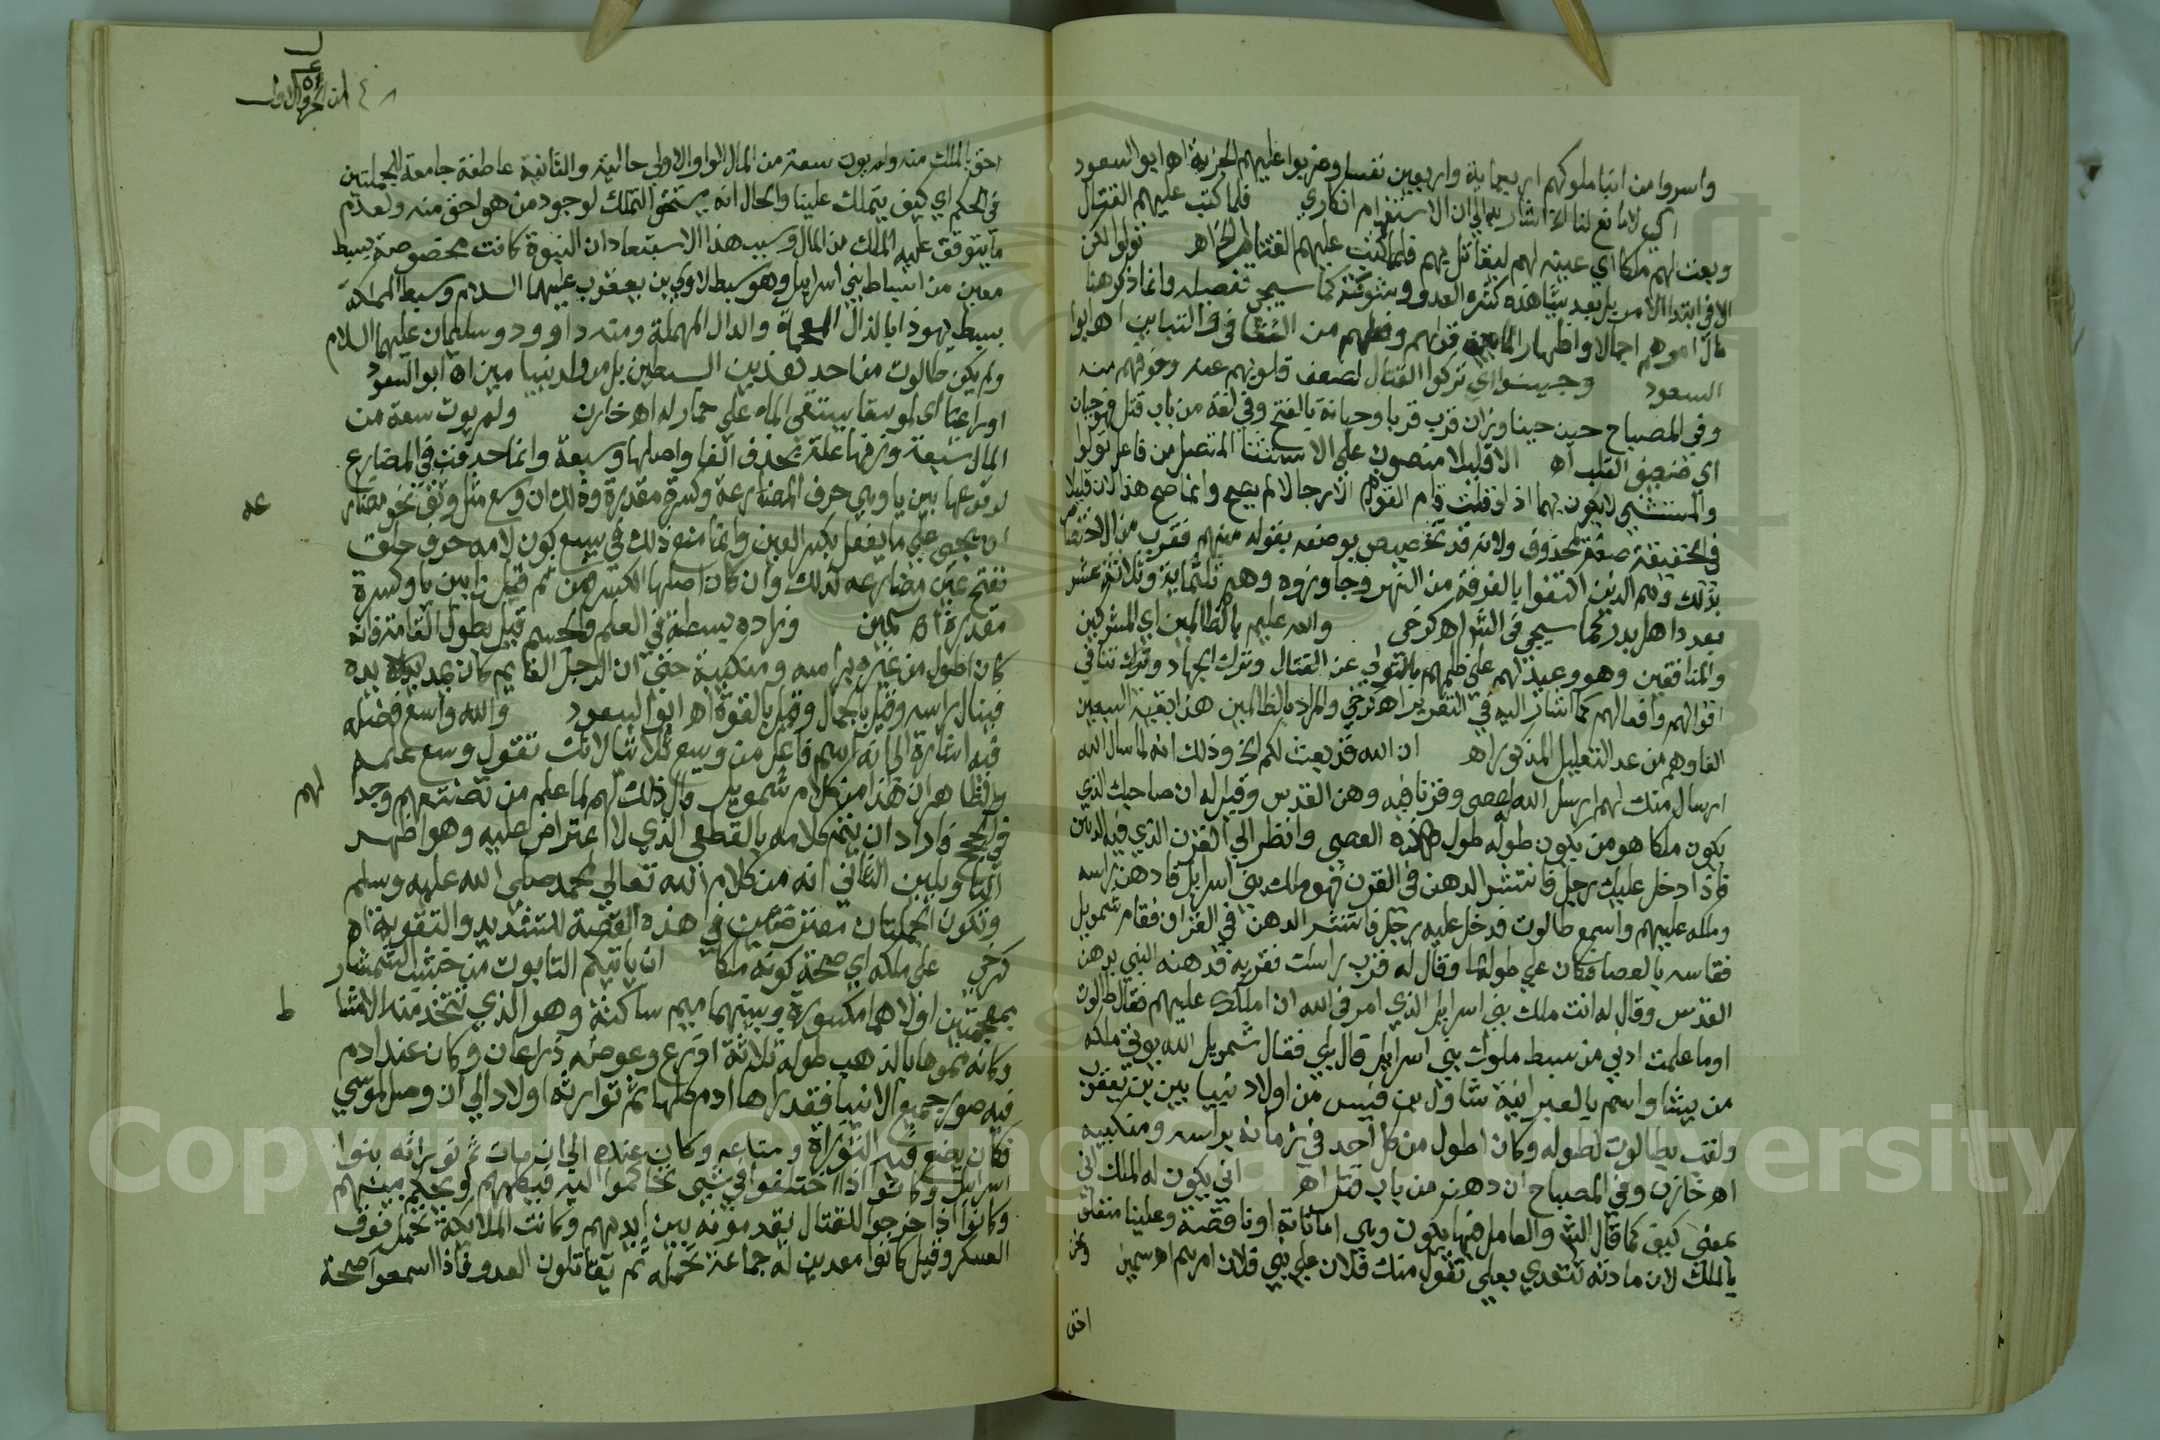 واسروا من ابنا ملوكهم اربعماية واربعين نفسا وضربوا عليهم الجزية اه ابو السعود
اي لا مانع لنا اه اشار به الي ان الاستفهام انكاري فلما كتب عليهم القتال
وبعث لهم ملكا اي عينه لهم ليقاتل بهم فلما كتب عليهم القتال الخ اه تولوا لكن
لا في ابتدا الامر بل بعد مشاهدة كثرة العدو وشوكته كما سيجي تفصيله وانما ذكر هنا
مآل امرهم اجمالا واظهارا لما بين قولهم وفعلهم من التنافي والتباين اه ابو
السعود وجبنوا اي تركوا القتال لضعف قلوبهم عنه وخوفهم منه
وفي المصباح جبن جبنا وزان قرب قربا وجبانة بالفتح وفي لغة من باب قتل فهو جبان
اي ضعيف القلب اه الا قليلا منصوب علي الاستثنا المتصل من فاعل تولوا
والمستثني لا يكون مبهما اذ لو قلت قام القوم الا رجالا لم يصح وانما صح هذا لان قليلا
في الحقيقة صفة لمحذوف ولانه قد تخصص بوصفه بقوله منهم فقرب من الاختصاص
بذلك وهم الذين اكتفوا بالغرفة من النهر وجاوزوه وهم ثلثماية وثلاثة عشر
بعدد اهل بدر كما سيجي في الشر اه كرخي والله عليم بالظالمين اي المشركين
والمنافقين وهو وعيد لهم علي ظلمهم بالتولي عن القتال وترك الجهاد وترك تنافي
اقوالهم وافعالهم كما اشار اليه في التقرير اه كرخي والمراد بالظالمين هنا بقية السبعين
الفا وهم من عد التعليل المذكور اه ان الله قد بعث لكم الخ وذلك انه لما سال الله
ارسال ملك لهم ارسل الله له عصي وقرنا فيه دهن القدس وقيل له ان صاحبك الذي
يكون ملكا هو من يكون طوله طول هذه العصي وانظر الي القرن الذي فيه الدهن
فاذا دخل عليك رجل فانتشر الدهن في القرن فهو ملك بني اسرائيل فادهن راسه
وملكه عليهم واسمع طالوت فدخل عليه رجل فانتشر الدهن في القرن فقام شمويل
فقاسه بالعصا فكان علي طولها وقال له قرب راسك فقربه فدهنه النبي بدهن
القدس وقال له انت ملك بني اسرائيل الذي امرني الله ان املكك عليهم فقال طالوت
اوما علمت ادني من سبط ملوك بني اسرائيل قال بلي فقال شمويل الله يوتي ملكه
من يشا واسمه بالعبرانية شاول بن قيس من اولاد بنيامين بن يعقوب
ولقب بطالوت لطوله وكان اطول من كل احد في زمانه براسه ومنكبيه
اه خازن وفي المصباح ان دهن من باب قتل اه اني يكون له الملك اني
بمعني كيف كما قال الش والعامل فيها يكون وهي اما تامة او ناقصة وعلينا متعلق
بالملك لان مادته تتعدي بعلي تقول ملك فلان علي بني فلان امرهم اه سمين ونحن
احق
٤٨ من الجزو الاول
احق بالملك منه ولم يوت سعة من المال الواو الاولي حالية والثانية عاطفة جامعة للجملتين
في الحكم اي كيف يتملك علينا والحال انه لا يستحق التملك لوجود من هو احق منه ولعدم
ما يتوقف عليه الملك من المال وسبب هذا الاستبعاد ان النبوة كانت مخصوصة بسبط
معين من اسباط بني اسرايل وهو سبط لاوي بن يعقوب عليهما السلام وسبط المملكة
بسبط يهوذا بالذال المعجمة والدال المهملة ومنه داوود وسليمان عليهما السلام
ولم يكن طالوت من احد هذين السبطين بل من ولد بنيامين اه ابو السعود
او راعيا اي او سقا يستقي الماء علي حمار له اه خازن ولم يوت سعة من
المال سعة وزنها علة بحذف الفا واصلها وسعة وانما حذفت في المضارع
لوقوعها بين يا وهي حرف المضارعة وكسرة مقدرة وذلك ان وسع مثل وثق فحق مضارعه
ان يجي علي يفعل بكسر العين وانما منع ذلك في يسع كون لامه حرف حلق
ففتح عين مضارعه لذلك وان كان اصلها الكسر فمن ثم قيل بين يا وكسرة
مقدرة اه سمين وزاده بسطة في العلم والجسم قيل بطول القامة فانه
كان اطول من غيره براسه ومنكبيه حتي ان الرجل القايم كان يمد يده
فينال راسه وقيل بالجمال وقيل بالقوة اه ابو السعود والله واسع فضله
فيه اشارة الي انه اسم فاعل من وسع ثلاثيا لانك تقول وسع علمه
والظاهر ان هذا من كلام شمويل قال ذلك لهم لما علم من تعنتهم وجدا لهم
في الحجج فاراد ان يتم كلامه بالقطعي الذي لا اعتراض عليه وهو اظهر
التاويلين الثاني انه من كلام الله تعالي لمحمد صلي الله عليه وسلم
وتكون الجملتان معترضتين في هذه القصة للتشديد والتقوية اه
كرخي علي ملكه اي صحة كونه ملكا ان ياتيكم التابوت من خشب الشمشار
بمعجمتين اولاهما مكسورة وبينهما ميم ساكنة وهو الذي تتخذ منه الامشاط
وكان مموها بالذهب طوله ثلاثة اذرع وعرضه ذراعان وكان عند ادم
فيه صور جميع الانبيا فقد راها ادم كلها ثم توارثه اولاده الي ان وصل لموسي
فكان يضع فيه التوراة ومتاعه وكان عنده الي ان مات ثم توارثه بنوا
اسرايل وكانوا اذا اختلفوا في شي تحاكموا اليه فيكلمهم ويحكم بينهم
وكانوا اذا خرجوا للقتال يقدمونه بين ايديهم وكانت الملايكة تحمله فوق
العسكر وقيل كانوا معدين له جماعة تحمله ثم يقاتلون العدو فاذا سمعوا صيحة
Copyright © King Saud University